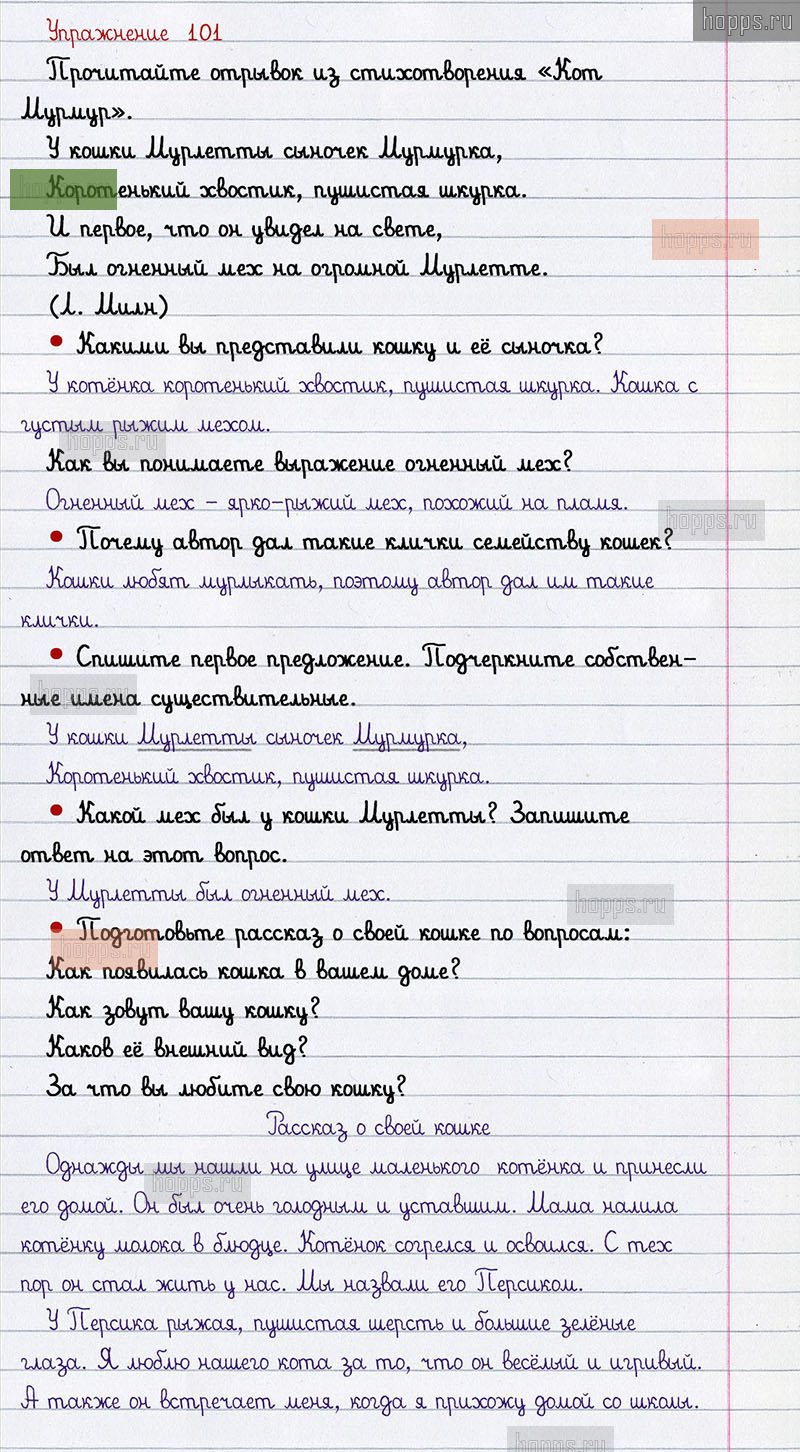 hopps.ru
Упражнение 101
Прочитайте отрывок из стихотворения «Кот
Мурмур».
У кошки Мурлетты сыночек Мурмурка,
Коротенький хвостик, пушистая шкурка.
И первое, что он увидел на свете,
hopps.ru
Был огненный мех на огромной Мурлетте.
(Л. Милн)
• Какими вы представили кошку и её сыночка?
У котёнка коротенький хвостик, пушистая шкурка. Кошка с
густым рыжим мехом.
hopps.ru
Как вы понимаете выражение огненный мех?
Огненный мех – ярко-рыжий мех, похожий на пламя.
hopps.ru
• Почему автор дал такие клички семейству кошек?
Кошки любят мурлыкать, поэтому автор дал им такие
клички.
• Спишите первое предложение. Подчеркните собствен-
ные имена существительные.
hopps.ru
У кошки Мурлетты сыночек Мурмурка,
Коротенький хвостик, пушистая шкурка.
• Какой мех был у кошки Мурлетты? Запишите
ответ на этот вопрос.
У Мурлетты был огненный мех.
hopps.ru
• Подготовьте рассказ о своей кошке по вопросам:
hopps.ru
Как появилась кошка в вашем доме?
Как зовут вашу кошку?
Каков её внешний вид?
За что вы любите свою кошку?
Рассказ о своей кошке
Однажды мы нашли на улице маленького котёнка и принесли
hopps.ru
его домой. Он был очень голодным и уставшим. Мама налила
котёнку молока в блюдце. Котёнок согрелся и освоился. С тех
пор он стал жить у нас. Мы назвали его Персиком.
У Персика рыжая, пушистая шерсть и большие зелёные
глаза. Я люблю нашего кота за то, что он весёлый и игривый.
А также он встречает меня, когда я прихожу домой со школы.
hopps.ru